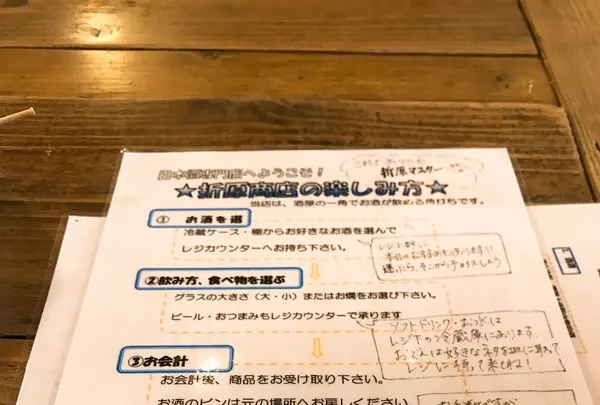 日本酒専門店へようこそ!
これで あなたも
折原マスター
★折原商店の楽しみ方★
当店は、酒屋の一角でお酒が飲める角打ちです。
① お酒を選
冷蔵ケース・棚からお好きなお酒を選んで
レジカウンターへお持ち下さい。
レジ上に
本日のおすすめもあります!!
迷ったら、そこからチョイスしよう
②飲み方、食べ物を選ぶ
グラスの大きさ(大・小)またはお燗をお選び下さい。
ビール・おつまみもレジカウンターで承ります
ソフトドリンク・お水は
レジ下の冷蔵庫にあります
おでんは好きなネタを皿に取って
レジに持って来てね!
③お会計
お会計後、商品をお受け取り下さい。
お酒のビンは元の場所へお戻しください